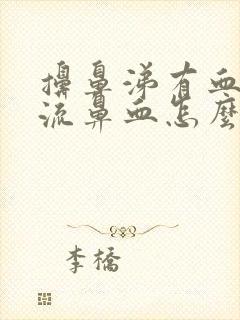 擤鼻涕有血
流鼻血怎麼
李橋